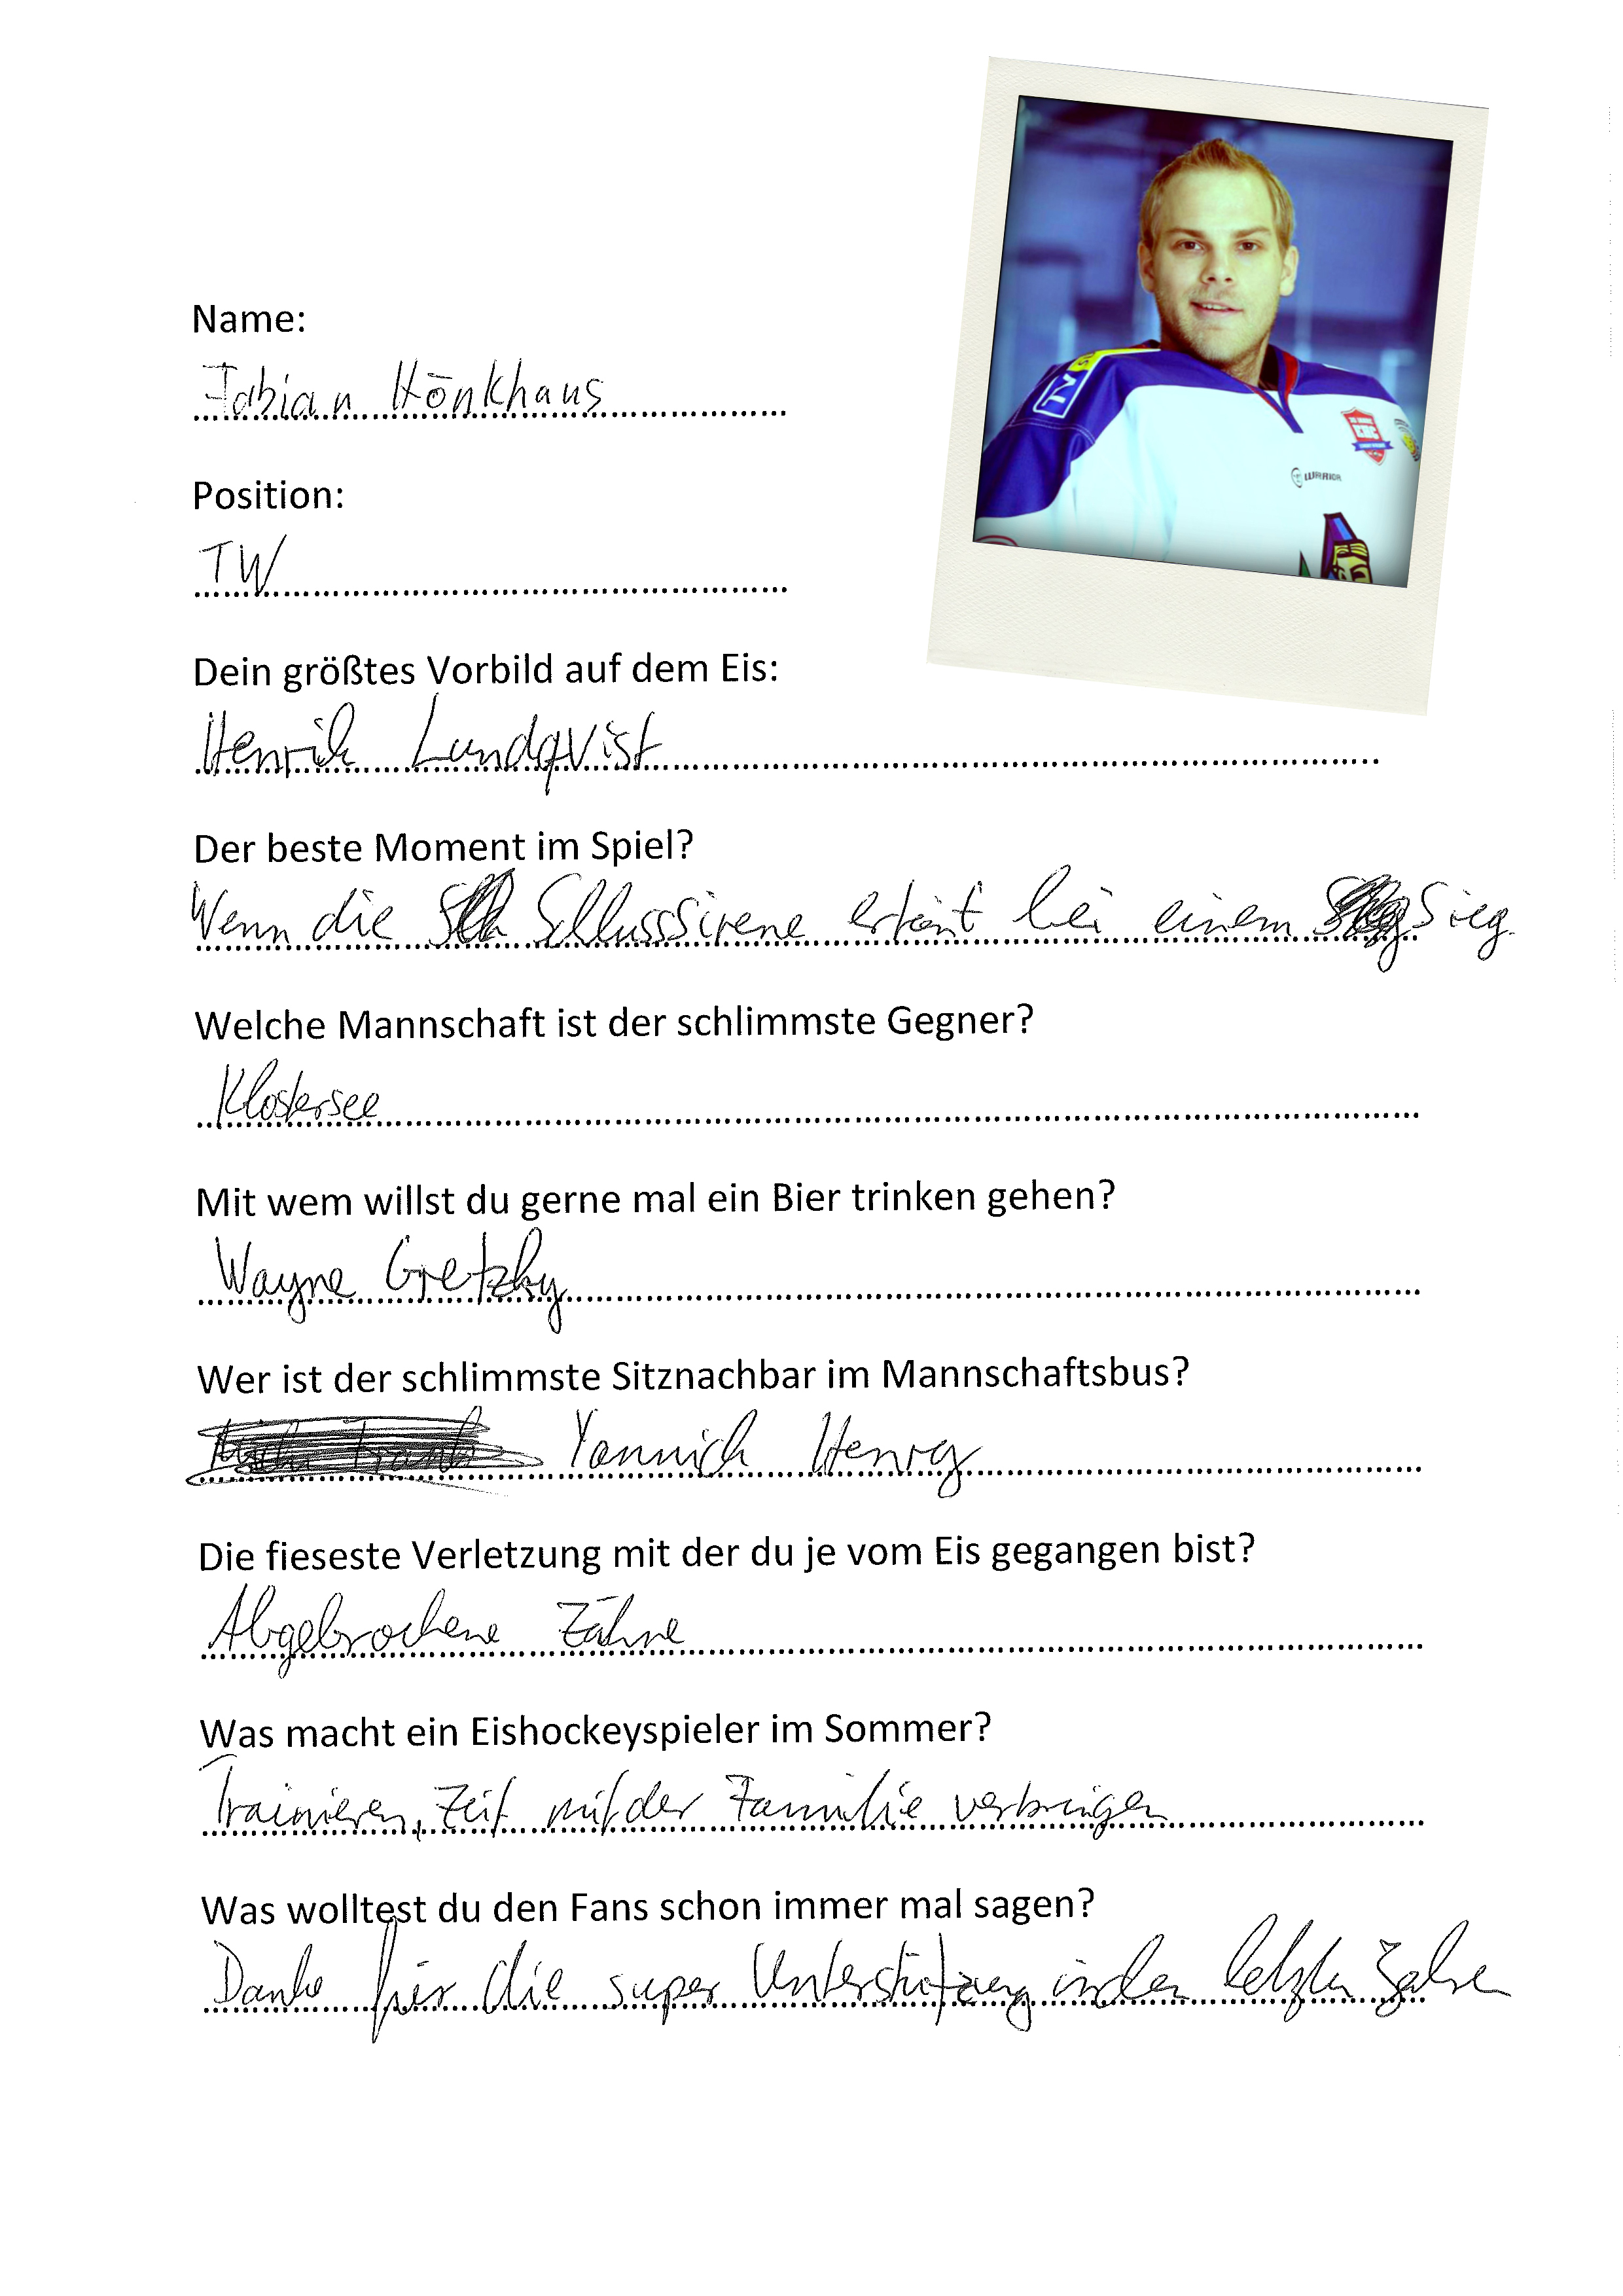 TV
WARRIOR
Name:
Fabian Hönkhaus
Position:
TW
Dein größtes Vorbild auf dem Eis:
Henrik Lundqvist
Der beste Moment im Spiel?
Wenn die Schlusssirene ertönt bei einem Sieg.
Welche Mannschaft ist der schlimmste Gegner?
Klostersee
Mit wem willst du gerne mal ein Bier trinken gehen?
Wayne Gretzky
Wer ist der schlimmste Sitznachbar im Mannschaftsbus?
Yannick Henry
Die fieseste Verletzung mit der du je vom Eis gegangen bist?
Abgebrochene Zähne
Was macht ein Eishockeyspieler im Sommer?
Trainieren, Zeit mit der Familie verbringen
Was wolltest du den Fans schon immer mal sagen?
Danke für die super Unterstützung in den letzten Jahren